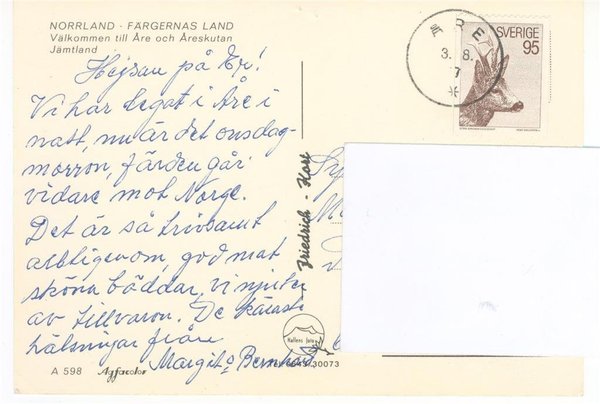 NORRLAND - FÄRGERNAS LAND
Välkommen till Åre och Åreskutan
Jämtland
Hejsan på Er!
Vi har legat i Åre i
natt, nu är det onsdag-
morron, färden går
vidare mot Norge.
Det är så trivsamt
alltigenom, god mat
sköna bäddar, vi njuter
av tillvaron. De käraste
hälsningar från
Margit o Bernhard
A 598 Agfacolor
Friedrich - Kort
Kallens foto
30073
ÅRE
3. 8. 7
SVERIGE
95